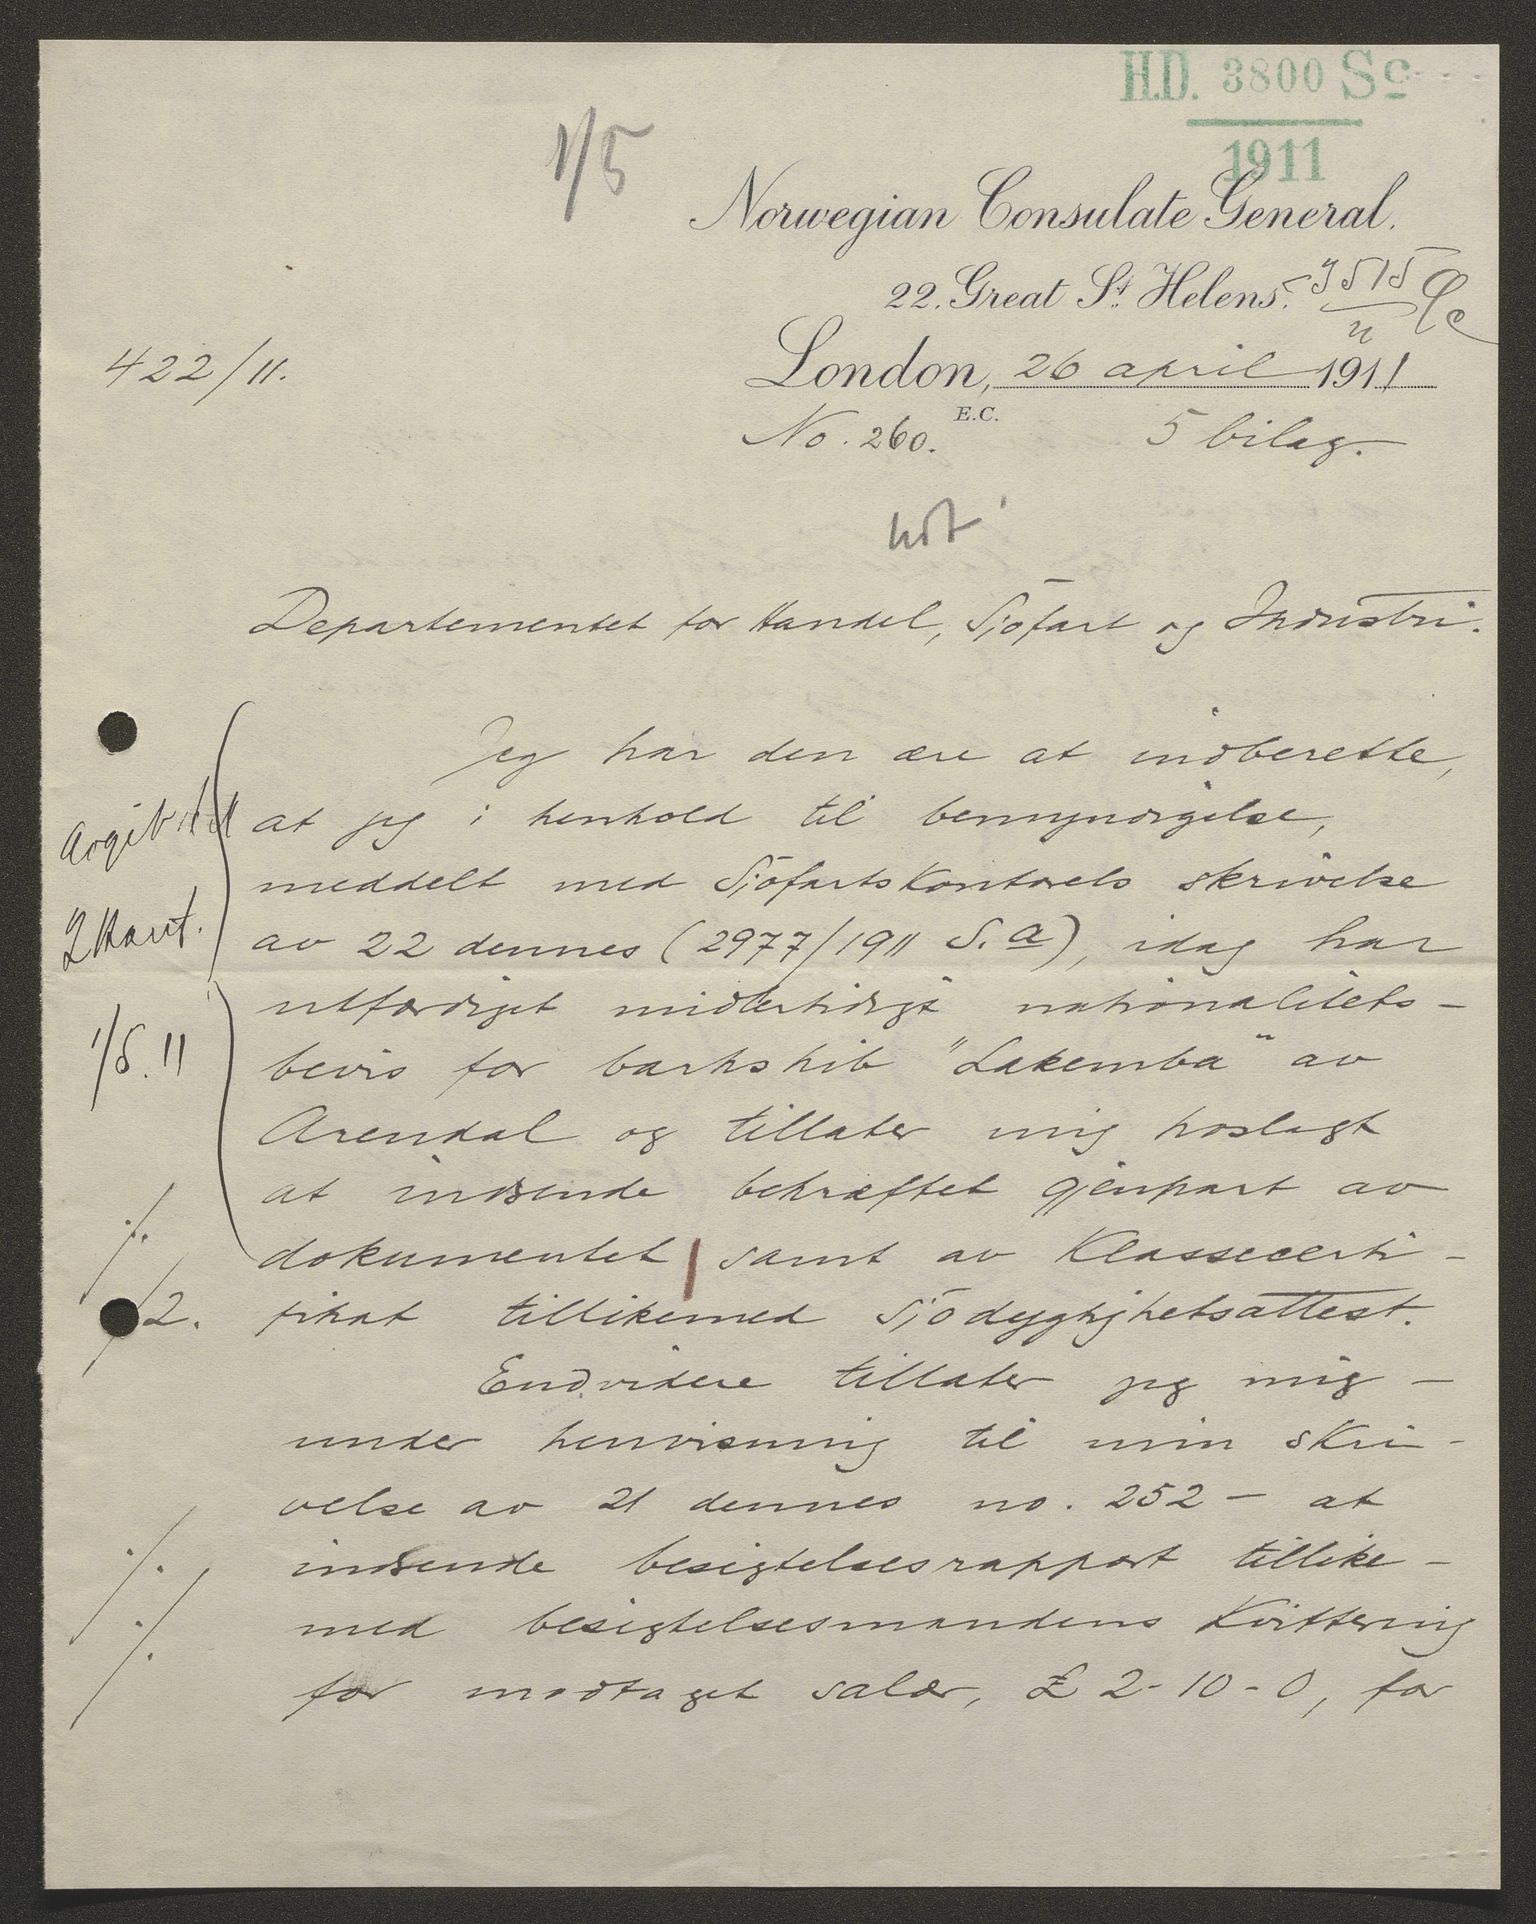 H.D. 3800 Sc
1911
1/5
Norwegian Consulate General.
22. Great St. Helens.
422/11.
London, 26 april 1911
E.C.
No. 260.
5 bilag.
Departementet for Handel, Sjöfart og Industri.
Jeg har den ære at indberette,
at jeg i henhold til bemyndigelse,
meddelt med Sjöfartskontorets skrivelse
av 22 dennes (2977/1911 S. a), idag har
utfærdiget midlertidigt nationalitets-
bevis for barkskib "Lakemba" av
Arendal og tillater mig hoslagt
at indsende bekræftet gjenpart av
dokumentet samt av Klassecerti-
fikat tillikemed Sjödygtighetsattest.
Endvidere tillater jeg mig -
under henvisning til min skri-
velse av 21 dennes no. 252 - at
indsende besigtelsesrapport tillike-
med besigtelsesmandens kvittering
for modtaget salær, £ 2-10-0, for
1/5. 11
2.